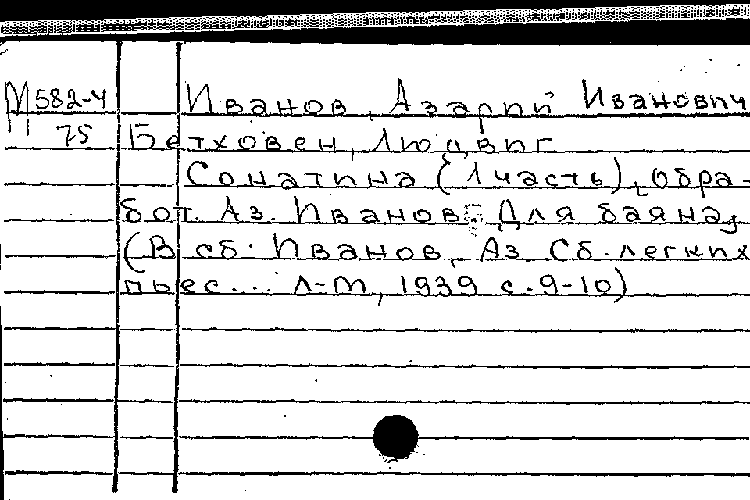 М582-4 Иванов, Азарий Иванович
75 Бетховен, Людвиг
Сонатина (1 часть), [обра-
бот. Аз. Иванов]. Для баяна,
(В сб. Иванов, Аз. Сб. легких
пьес... Л-М, 1939 с. 9-10)